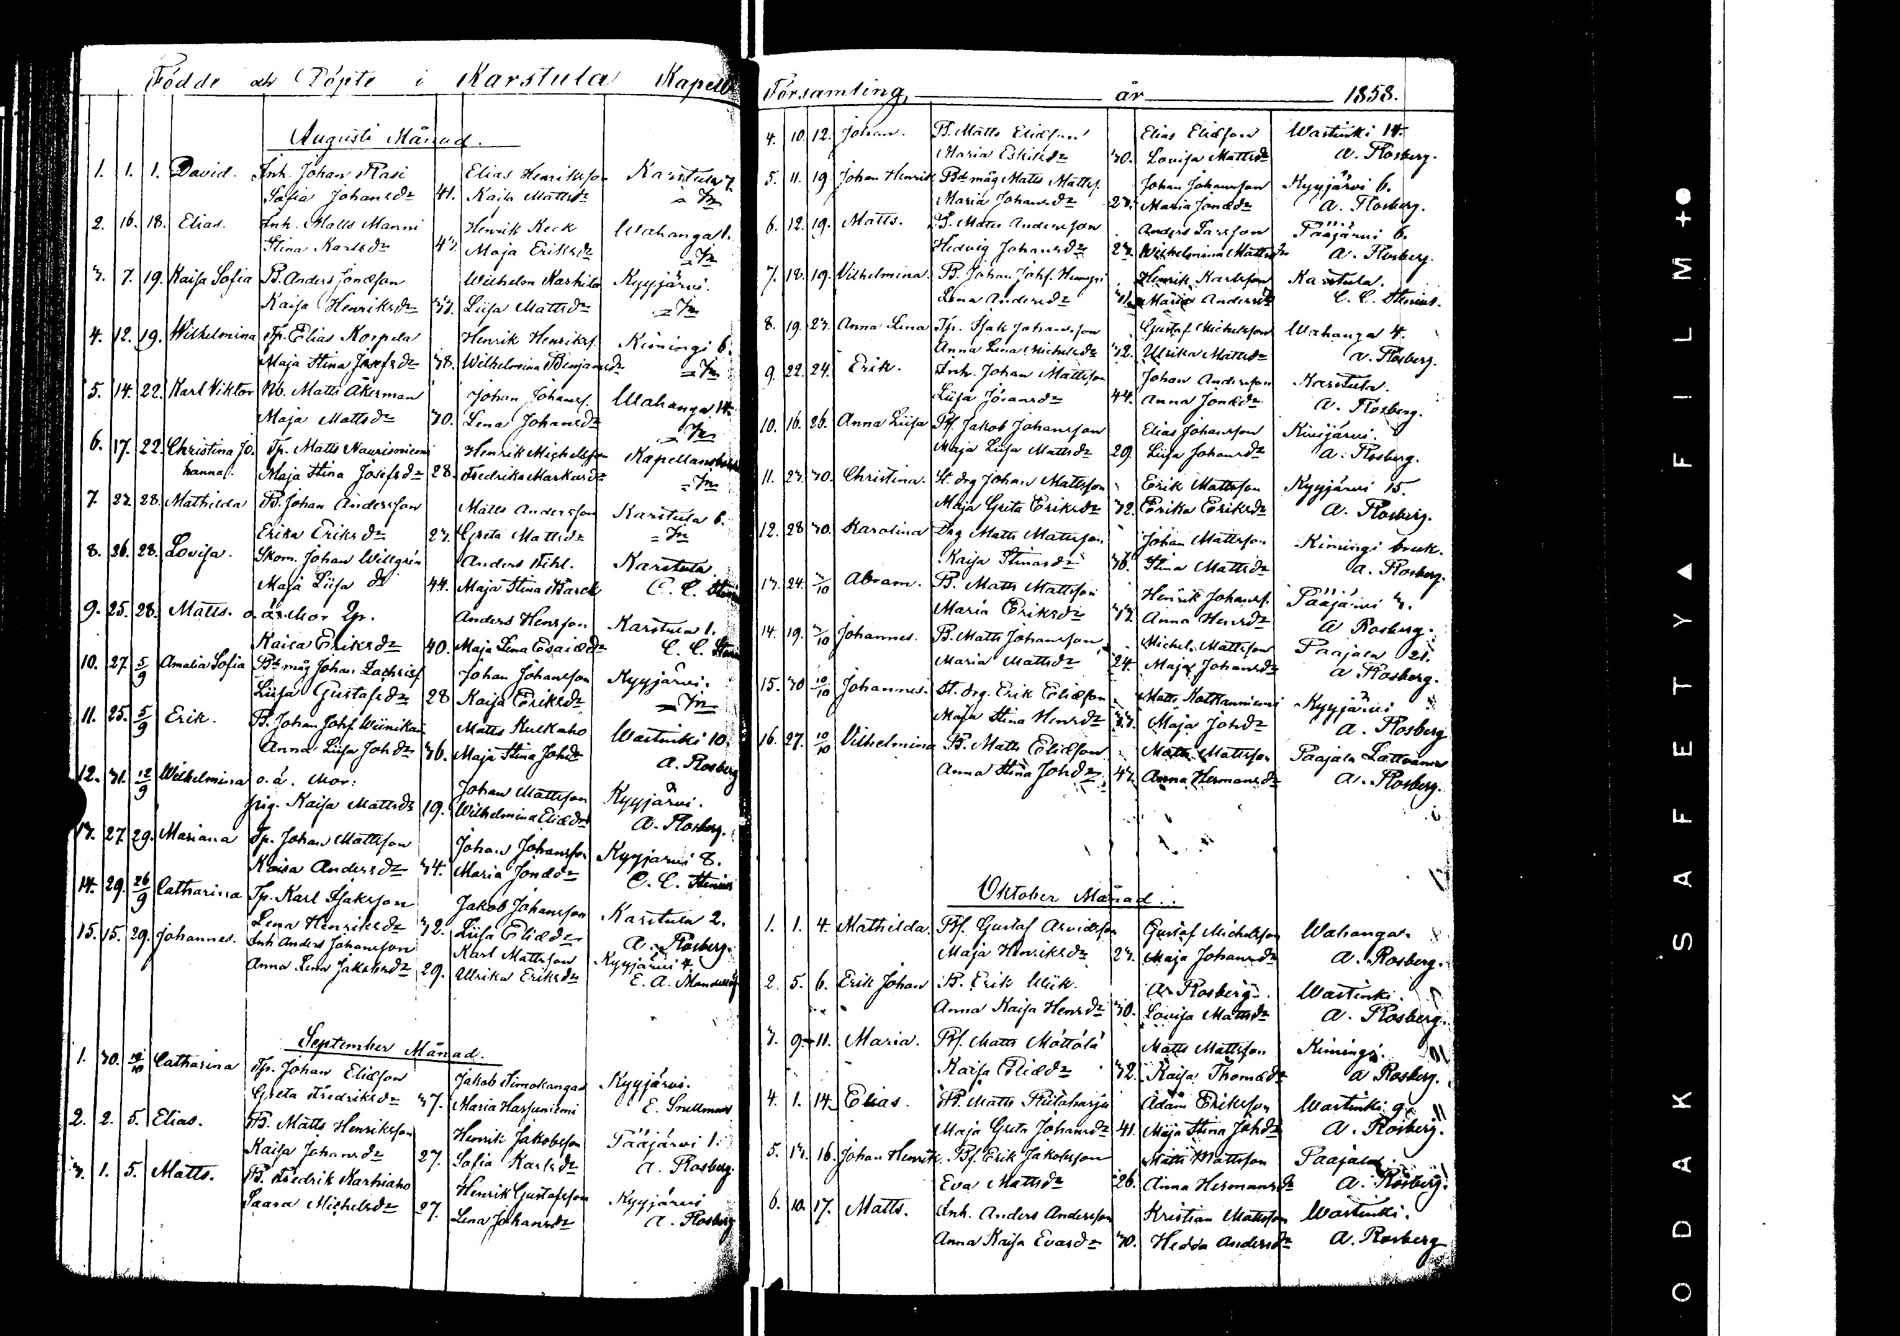 Födde och Döpte i Karstula Kapell
Augusti Månad.
1. 1. 1. David. Inh. Johan Rasi Elias Henriksson Karstula 7.
Sofia Johansdr 41. Kaisa Mattsdr
2. 16. 18. Elias. Inh. Matts Manni Henrik Keck Wahanga 1.
Stina Karlsdr 43. Maja Eriksdr
3. 7. 19. Kaisa Sofia B. Anders Jonasson Wilhelm Karhila Kyyjärvi.
Kaisa Henriksdr 33. Liisa Mattsdr
4. 12. 19. Wilhelmina Tp. Elias Korpela Henrik Henrikss. Kimingi 6.
Maja Stina Josefsdr 38. Wilhelmina Benjamsdr
5. 14. 22. Karl Viktor Nb. Matts Åkerman Johan Johanss. Wahanga 14.
Maja Mattsdr 30. Lena Johansdr
6. 17. 22. Christina Jo. Tp. Matts Naurisniemi Henrik Michelsson
hanna. Maja Stina Josefsdr 28. Fredrika Markusdr
7. 23. 28. Mathilda B. Johan Andersson Matts Andersson Karstula 6.
Erika Eriksdr 23. Greta Mattsdr
8. 26. 28. Lovisa. Skom. Johan Willgrén Anders Fihl. Karstula
Maja Liisa dr 44. Maja Stina Marck C. C. Stenius
9. 25. 28. Matts. o. är Mor Anders Hensson Karstula 1.
Kaisa Eriksdr 40. Maja Lena Esaiædr C. C. Stenius
10. 27. 5/9 Amalia Sofia Bdmåg Johan Zachriss Johan Johansson Kyyjärvi.
Liisa Gustafsdr 28 Kaisa Eriksdr
11. 25. 5/9 Erik. B. Johan Johss. Wiinikka Matts Kulkaho Wastinki 10.
Anna Liisa Johdr 36. Maja Stina Johdr A. Rosberg
12. 31. 12/9 Wilhelmina o. ä. Mor: Johan Mattsson Kyyjärvi.
pig. Kaisa Mattsdr 19. Wilhelmina Eliædr A. Rosberg.
13. 27. 29. Mariana Tp. Johan Mattsson Johan Johansson Kyyjärvi 8.
Kaisa Andersdr 34. Maria Jonædr C. C. Stenius
14. 29. 26/9 Catharina Tp. Karl Isaksson Jakob Johansson Karstula 2.
Lena Henriksdr 32. Liisa Eliædr A. Rosberg.
15. 15. 29. Johannes. Inh Anders Johansson Karl Mattsson Kyyjärvi 4
Anna Lena Jakobsdr 29. Ulrika Eriksdr E. A.
September Månad.
1. 30. 10/10 Catharina Tp. Johan Eliæson Jakob Timokangas Kyyjärvi.
Greta Fredriksdr 37. Maria Harjuniemi E. Snellman
2. 2. 5. Elias. B. Matts Henriksson Henrik Jakobsson Pääjärvi 1.
Kaisa Johansdr 27. Sofia Karlsdr A. Rosberg.
3. 1. 5. Matts. B. Fredrik Karhiaho Henrik Gustafsson Kyyjärvi
Saara Michelsdr 27. Lena Johansdr A. Rosberg
Församling, år 1858.
4. 10. 12. Johan. B. Matts Eliæson Elias Eliæson Wastinki 14.
Maria Eskilsdr 30. Lovisa Mattsdr A. Rosberg.
5. 11. 19 Johan Henrik Bdmåg Matts Mattss. Johan Johansson Kyyjärvi 6.
Maria Johansdr 23. Maria Jonædr A. Rosberg.
6. 12. 19. Matts. B. Matts Andersson Anders Larsson Pääjärvi 6.
Hedvig Johansdr 23. Wilhelmina Mattsdr A. Rosberg.
7. 18. 19. Vilhelmina. B. Johan Johss. Henrik Karlsson Karstula.
Lena Andersdr 31. Maria Andersdr C. C. Stenius.
8. 19. 23. Anna Lena Tp. Isak Johansson Gustaf Michelsson Wahanga 4.
Anna Lena Michelsdr 32. Ulrika Mattsdr A. Rosberg.
9. 22. 24. Erik. Inh. Johan Mattsson Johan Andersson Karstula.
Liisa Johansdr 44. Anna Jonædr A. Rosberg.
10. 16. 26. Anna Liisa Bf. Jakob Johansson Elias Johansson Kiujärvi.
Maja Liisa Mattsdr 29. Liisa Johansdr A. Rosberg.
11. 23. 30. Christina. St. drg Johan Mattsson Erik Mattsson Kyyjärvi 15.
Maja Greta Eriksdr 32. Erika Eriksdr A. Rosberg.
12. 28. 30. Karolina Drg Matts Mattsson Johan Mattsson Kimingi bruk.
Kaisa Stinasdr 36. Stina Mattsdr A. Rosberg.
13. 24. 3/10 Abram. B. Matts Mattsson Henrik Johanss. Pääjärvi 3.
Maria Eriksdr 33. Anna Hensdr A Rosberg.
14. 19. 3/10 Johannes. B. Matts Johansson Michel Mattsson Paajala 21.
Maria Mattsdr 24. Maja Johansdr A Rosberg.
15. 30 10/10 Johannes. St. drg. Erik Eliæson Matts Kotkanniemi Kyyjärvi
Maja Stina Hensdr 33. Maja Johdr A. Rosberg
16. 27. 10/10 Vilhelmina B. Matts Eliæson Matts Mattsson Paajala
Anna Stina Johdr 43. Anna Hermansdr A. Rosberg.
Oktober Månad.
1. 1. 4. Mathilda. Bf. Gustaf Arvidsson Gustaf Michelsson Wahanga.
Maja Henriksdr 23. Maja Johansdr A. Rosberg.
2. 5. 6. Erik Johan B. Erik Wiik. A. Rosberg. Wastinki.
Anna Kaisa Hensdr 30. Lovisa Mattsdr A. Rosberg.
3. 9. 11. Maria. Bf. Matts Möttölä Matts Mattsson Kimingi.
Kaisa Eliædr 32. Kaisa Thomædr A Rosberg.
4. 1. 14. Elias. B. Matts Adam Eriksson Wastinki 9.
Maja Greta Johansdr 41. Maja Stina Johdr A. Rosberg.
5. 13. 16. Johan Henrik Bf. Erik Jakobsson Matts Mattsson Paajala
Eva Mattsdr 26. Anna Hermansdr A. Rosberg.
6. 10. 17. Matts. Inh. Anders Andersson Kristian Mattsson Wastinki.
Anna Kaisa Evasdr 30. Hedda Andersdr A. Rosberg
ODAK SAFETY▲FILM+●